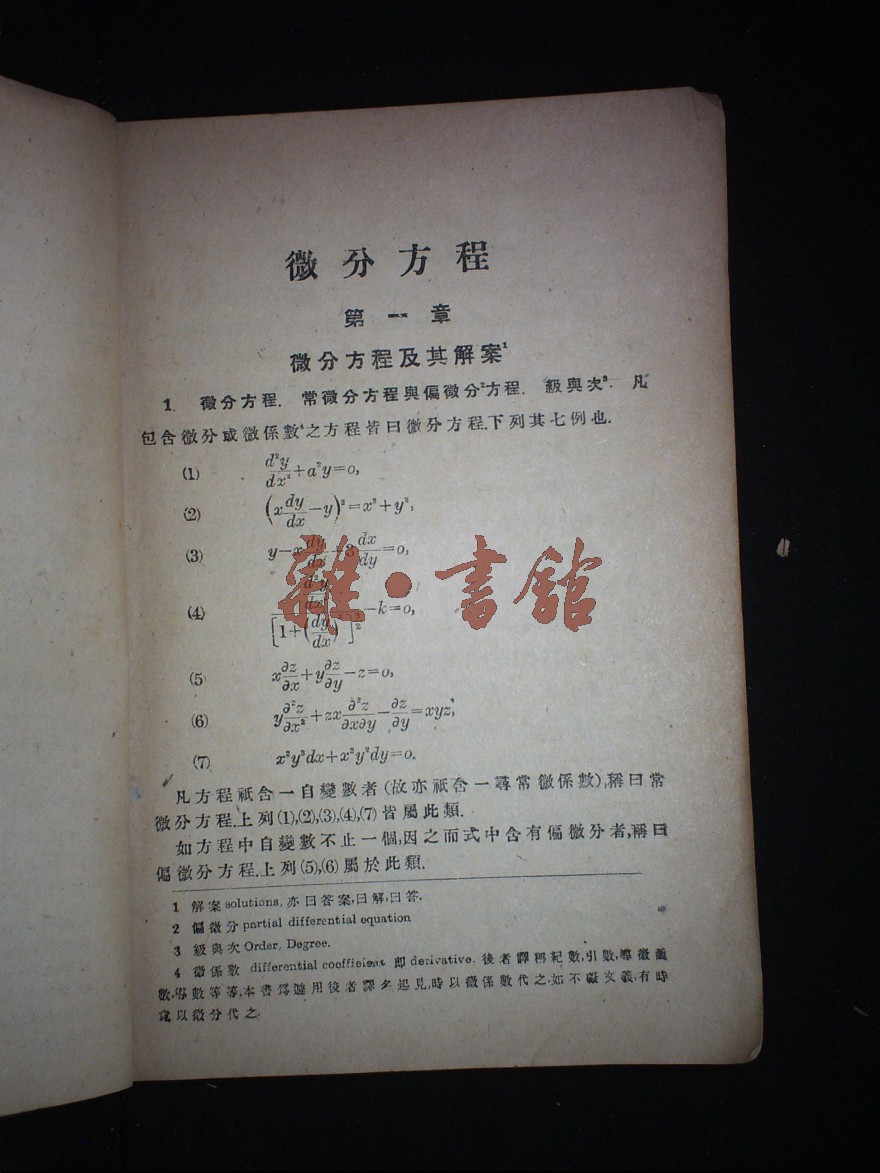 微分方程
第一章
微分方程及其解案¹
1. 微分方程. 常微分方程與偏微分²方程. 級與次³. 凡
包含微分或微係數⁴之方程皆曰微分方程.下列其七例也.
(1) d²y/dx²+a²y=0,
(2) (x dy/dx−y)²=x²+y²,
(3) y−x dy/dx+3 dx/dy=0,
(4) (d²y/dx²)/[1+(dy/dx)²]^(3/2)−k=0,
(5) x ∂z/∂x+y ∂z/∂y−z=0,
(6) y ∂²z/∂x²+zx ∂²z/∂x∂y−∂z/∂y=xyz,
(7) x²y³dx+x³y²dy=0.
凡方程祇含一自變數者(故亦祇含一尋常微係數),稱曰常
微分方程.上列(1),(2),(3),(4),(7)皆屬此類.
如方程中自變數不止一個,因之而式中含有偏微分者,稱曰
偏微分方程.上列(5),(6)屬於此類.
1 解案 solutions, 亦曰答案,曰解,曰答.
2 偏微分 partial differential equation
3 級與次 Order, Degree.
4 微係數 differential coefficient 即 derivative. 後者譯稱紀數,引數,導微
數,導數等等,本書爲 用後者譯名起見,時以微係數代之.如不礙文義,有時
以微分代之.
雜·書館